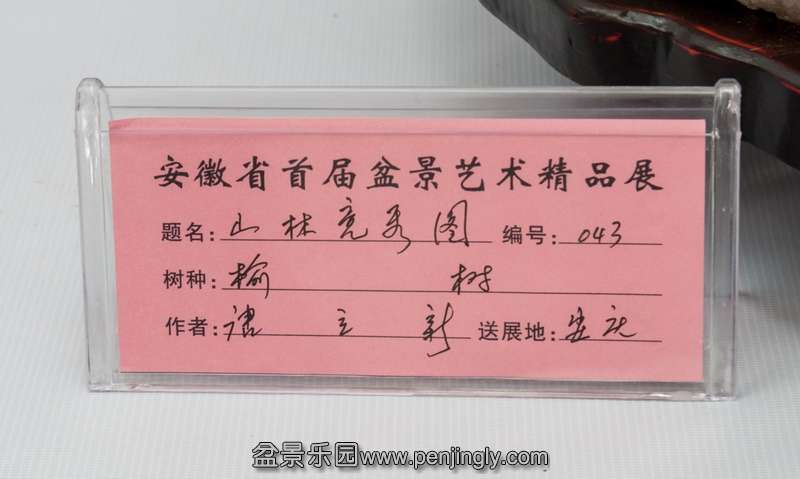 安徽省首届盆景艺术精品展
题名: 山林竞秀图 编号: 043
树种: 榆树
作者: 立新 送展地: 安庆
盆景乐园www.penjingly.com